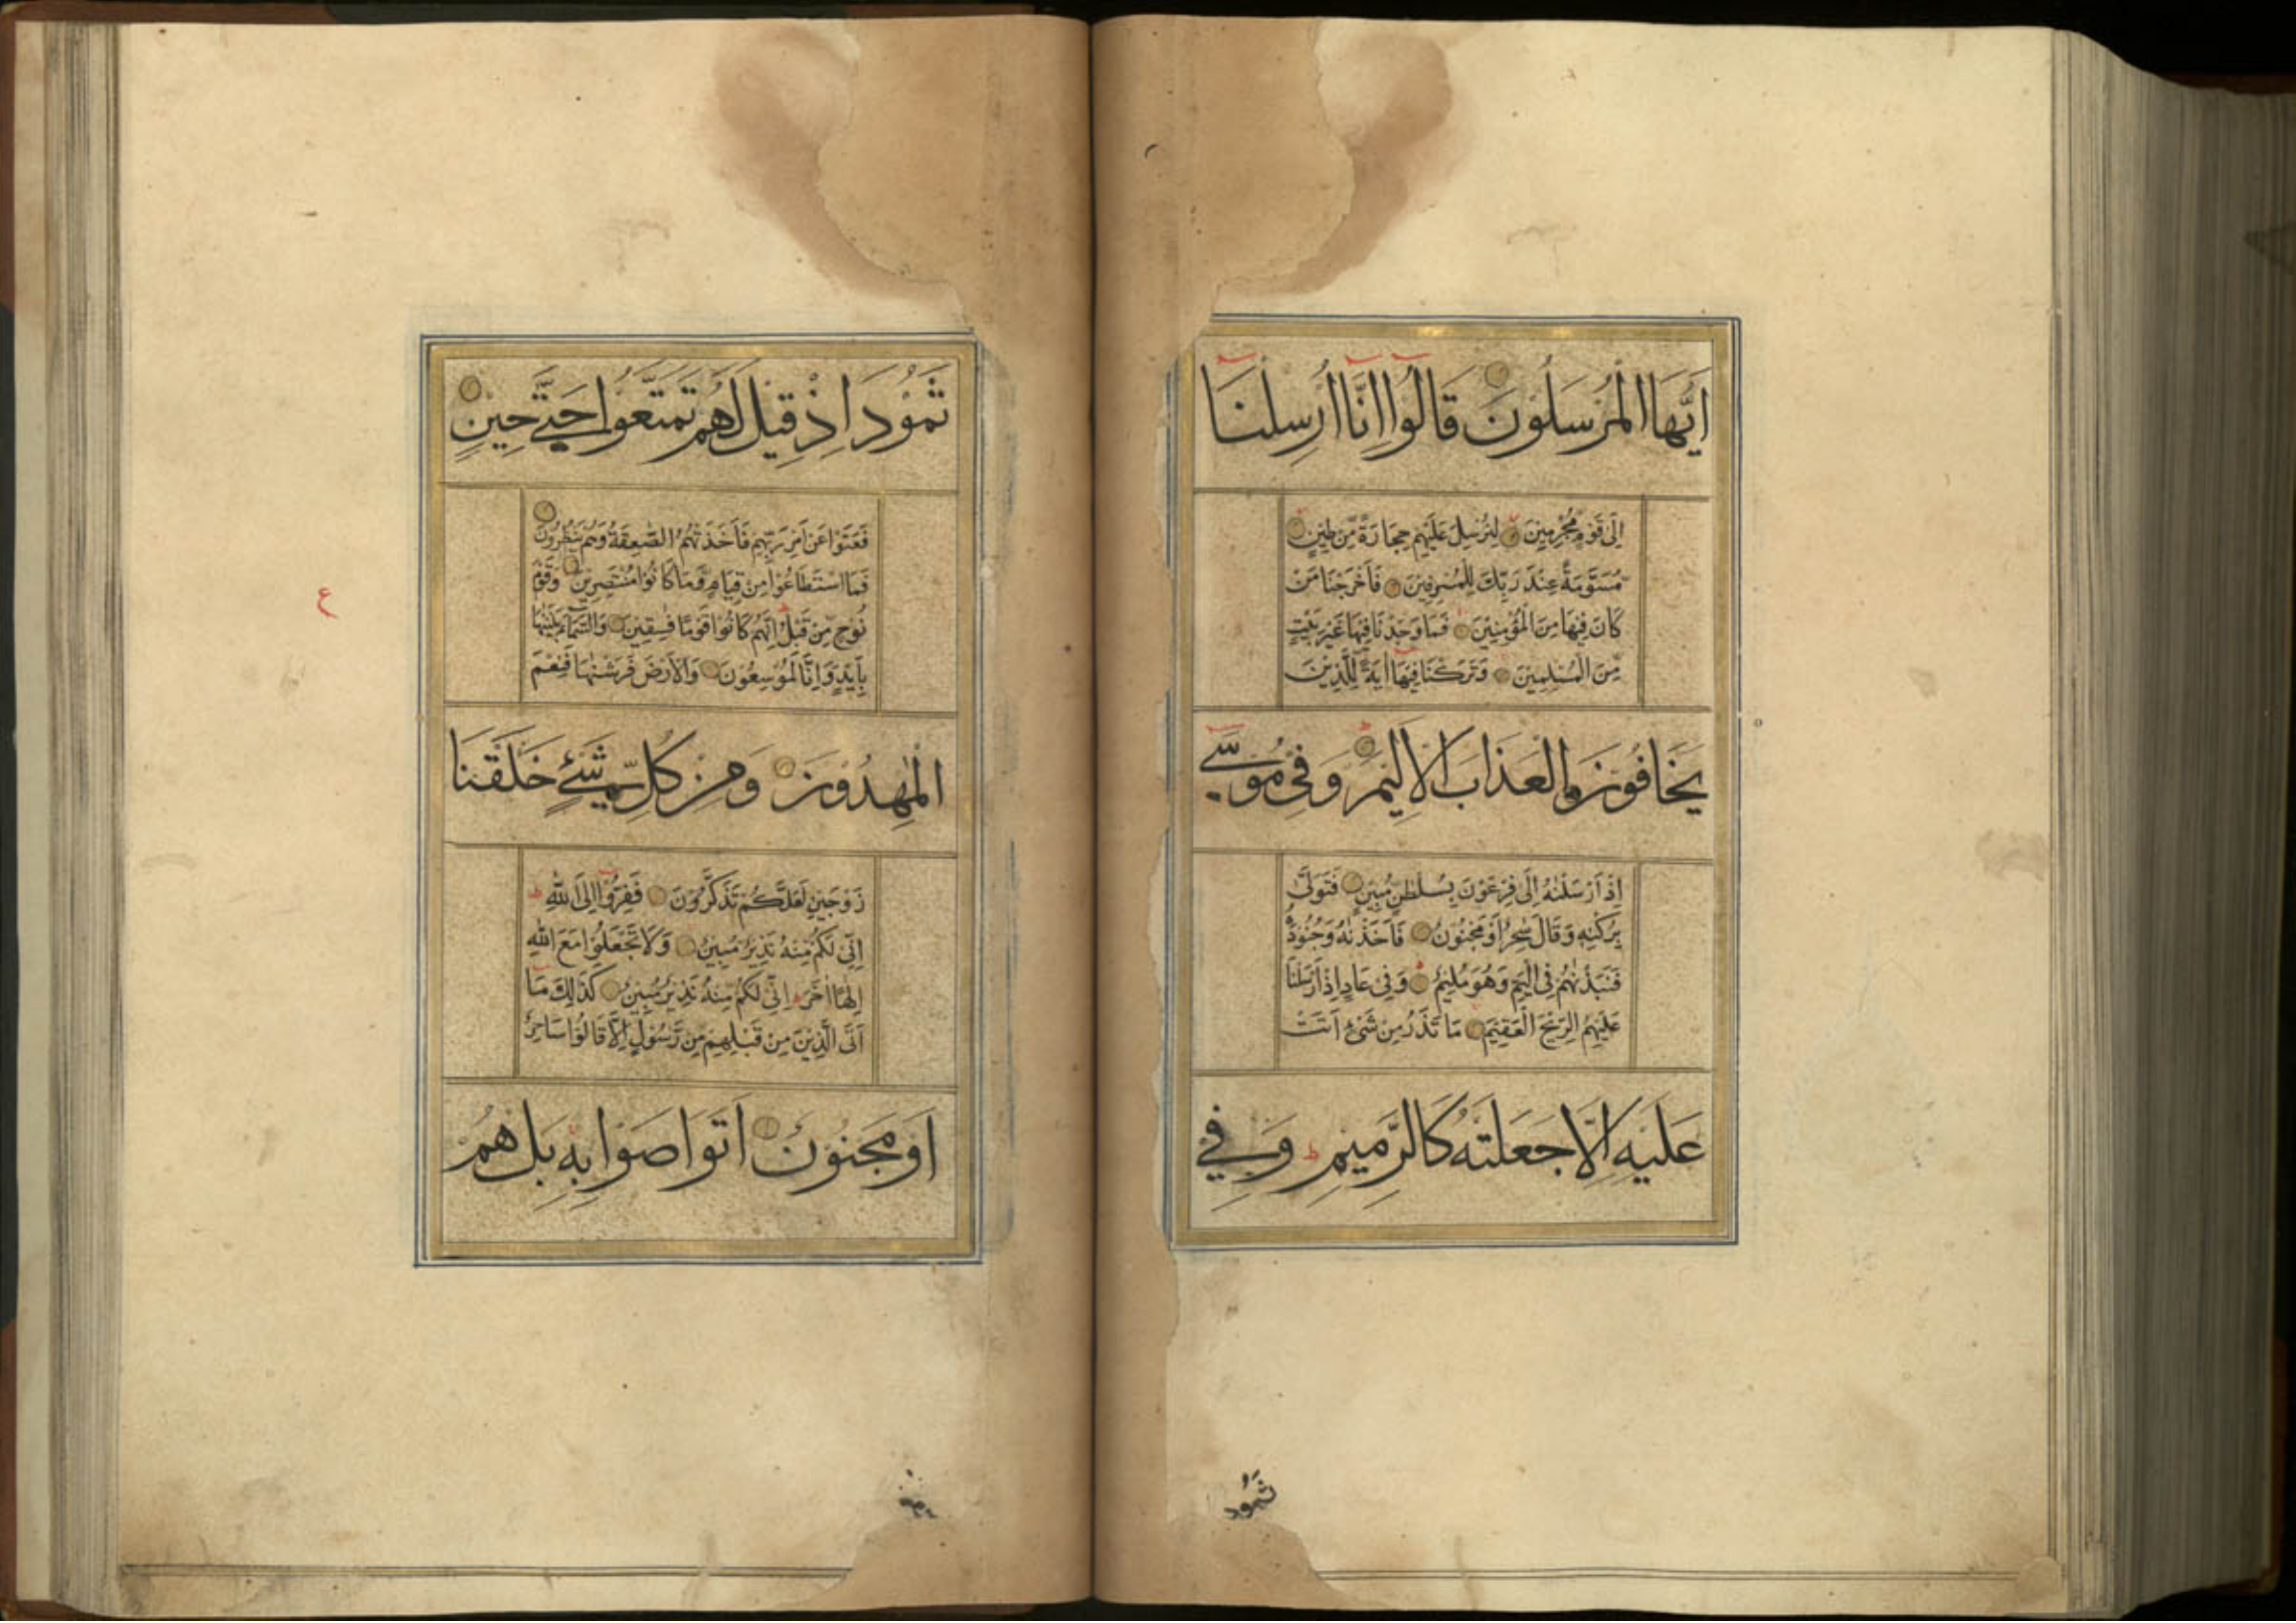 اَيُّهَا الْمُرْسَلُوْنَ قَالُوْا اِنَّا اُرْسِلْنَا
اِلٰى قَوْمٍ مُّجْرِمِيْنَ لِنُرْسِلَ عَلَيْهِمْ حِجَارَةً مِّنْ طِيْنٍ
مُّسَوَّمَةً عِنْدَ رَبِّكَ لِلْمُسْرِفِيْنَ فَاَخْرَجْنَا مَنْ
كَانَ فِيْهَا مِنَ الْمُؤْمِنِيْنَ فَمَا وَجَدْنَا فِيْهَا غَيْرَ بَيْتٍ
مِّنَ الْمُسْلِمِيْنَ وَتَرَكْنَا فِيْهَا اٰيَةً لِّلَّذِيْنَ
يَخَافُوْنَ الْعَذَابَ الْاَلِيْمَ وَفِيْ مُوْسٰى
اِذْ اَرْسَلْنٰهُ اِلٰى فِرْعَوْنَ بِسُلْطٰنٍ مُّبِيْنٍ فَتَوَلّٰى
بِرُكْنِهٖ وَقَالَ سٰحِرٌ اَوْ مَجْنُوْنٌ فَاَخَذْنٰهُ وَجُنُوْدَهٗ
فَنَبَذْنٰهُمْ فِى الْيَمِّ وَهُوَ مُلِيْمٌ وَفِيْ عَادٍ اِذْ اَرْسَلْنَا
عَلَيْهِمُ الرِّيْحَ الْعَقِيْمَ مَا تَذَرُ مِنْ شَىْءٍ اَتَتْ
عَلَيْهِ اِلَّا جَعَلَتْهُ كَالرَّمِيْمِ ط وَفِيْ
ثَمُوْد
ثَمُوْدَ اِذْ قِيْلَ لَهُمْ تَمَتَّعُوْا حَتّٰى حِيْنٍ
فَعَتَوْا عَنْ اَمْرِ رَبِّهِمْ فَاَخَذَتْهُمُ الصّٰعِقَةُ وَهُمْ يَنْظُرُوْنَ
فَمَا اسْتَطَاعُوْا مِنْ قِيَامٍ وَّمَا كَانُوْا مُنْتَصِرِيْنَ وَقَوْمَ
نُوْحٍ مِّنْ قَبْلُ اِنَّهُمْ كَانُوْا قَوْمًا فٰسِقِيْنَ وَالسَّمَاءَ بَنَيْنٰهَا
بِاَيْدٍ وَّاِنَّا لَمُوْسِعُوْنَ وَالْاَرْضَ فَرَشْنٰهَا فَنِعْمَ
الْمٰهِدُوْنَ وَمِنْ كُلِّ شَىْءٍ خَلَقْنَا
زَوْجَيْنِ لَعَلَّكُمْ تَذَكَّرُوْنَ فَفِرُّوْا اِلَى اللّٰهِ ط
اِنِّىْ لَكُمْ مِّنْهُ نَذِيْرٌ مُّبِيْنٌ وَلَا تَجْعَلُوْا مَعَ اللّٰهِ
اِلٰهًا اٰخَرَ ط اِنِّىْ لَكُمْ مِّنْهُ نَذِيْرٌ مُّبِيْنٌ كَذٰلِكَ مَا
اَتَى الَّذِيْنَ مِنْ قَبْلِهِمْ مِّنْ رَّسُوْلٍ اِلَّا قَالُوْا سَاحِرٌ
اَوْ مَجْنُوْنٌ اَتَوَاصَوْا بِهٖ بَلْ هُمْ
ع